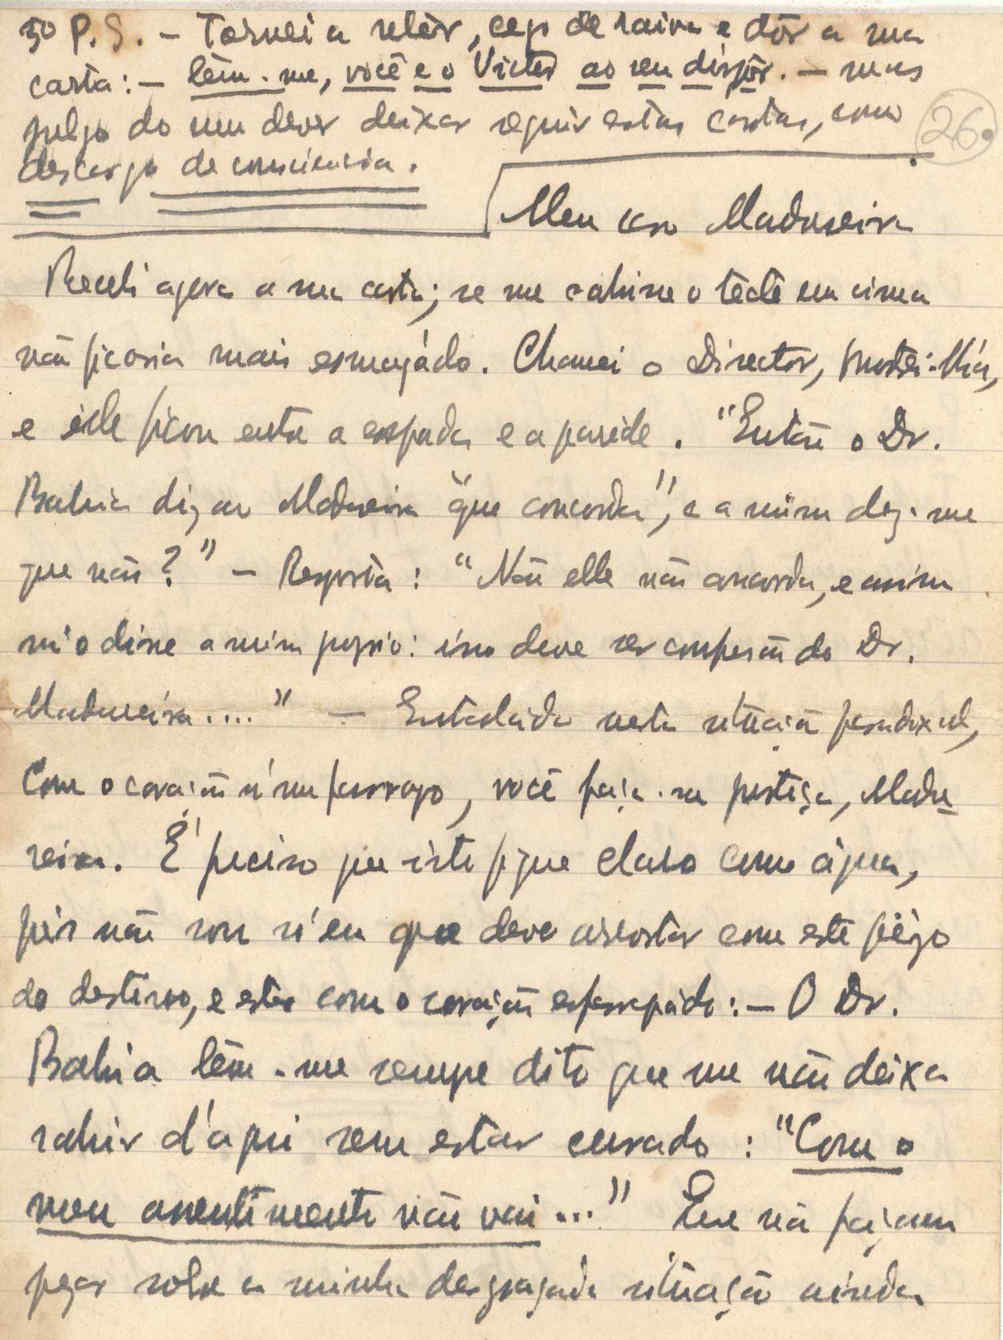 3º P.S. - Tornei a relêr, cego de raiva e dôr a sua
carta: - têm-me, você e o Victor ao seu dispôr. - mas
julgo do meu dever deixar seguir estas cartas, como
descargo de consciencia.
26.
Meu caro Madureira
Recebi agora a sua carta; se me cahisse o této em cima
não ficaria mais esmagádo. Chamei o Director, mostrei-lh'a,
e êlle ficou entre a espada e a parêde. "Então o Dr.
Bahia diz ao Madureira "que concorda", e a mim diz-me
que não?" - Resposta: "Não elle não concorda, e assim
m'o disse a mim proprio: isso deve ser confusão do Dr.
Madureira...." - Entaláda nesta situação paradoxal,
com o coração n'um farrapo, você faça-me justiça, Madu-
reira. É preciso que isto fique claro como água,
pois não sou só eu que devo arrostar com este jôgo
do destino, e estar com o coração esfarrapádo: - O Dr.
Bahia têm-me sempre dito que me não deixa
sahir d'aqui sem estar curado: "Com o
meu assentimento não vai..." Ora não façam
pezar sobre a minha desgraçada situação ainda